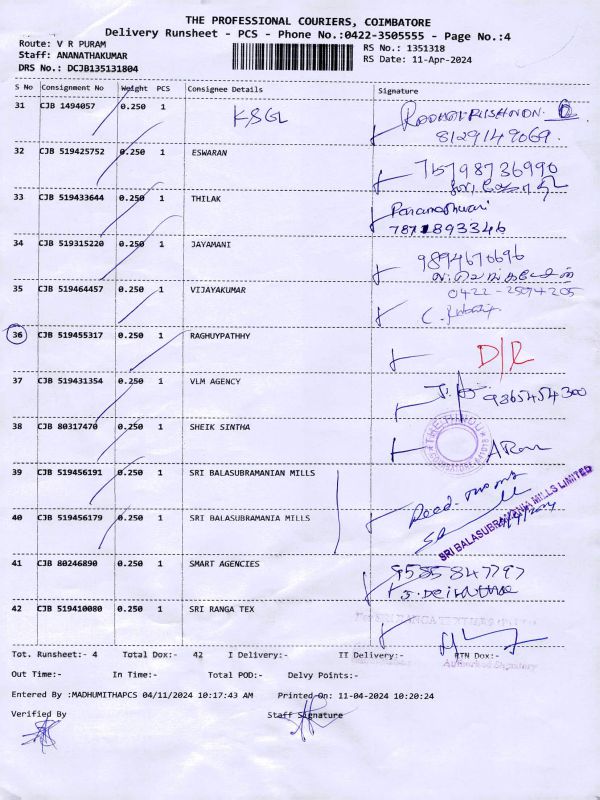 THE PROFESSIONAL COURIERS, COIMBATORE
Delivery Runsheet - PCS - Phone No.:0422-3505555 - Page No.:4
Route: V R PURAM
RS No.: 1351318
Staff: ANANATHAKUMAR
RS Date: 11-Apr-2024
DRS No.: DCJB135131804
S No Consignment No Weight PCS Consignee Details Signature
31 CJB 1494057 0.250 1 KSGL
8129149069.
32 CJB 519425752 0.250 1 ESWARAN
33 CJB 519433644 0.250 1 THILAK
7871893346
34 CJB 519315220 0.250 1 JAYAMANI 9894670696
35 CJB 519464457 0.250 1 VIJAYAKUMAR 0422-2594205
36 CJB 519455317 0.250 1 RAGHUYPATHHY D/R
37 CJB 519431354 0.250 1 VLM AGENCY 9365454300
38 CJB 80317470 0.250 1 SHEIK SINTHA
THE HINDU
39 CJB 519456191 0.250 1 SRI BALASUBRAMANIAN MILLS
40 CJB 519456179 0.250 1 SRI BALASUBRAMANIA MILLS
SRI BALASUBRAMANIA MILLS LIMITED
41 CJB 80246890 0.250 1 SMART AGENCIES 9585847797
42 CJB 519410080 0.250 1 SRI RANGA TEX
Tot. Runsheet:- 4 Total Dox:- 42 I Delivery:- II Delivery:- RTN Dox:-
Authorised Signatory
Out Time:- In Time:- Total POD:- Delvy Points:-
Entered By :MADHUMITHAPCS 04/11/2024 10:17:43 AM Printed On: 11-04-2024 10:20:24
Verified By Staff Signature